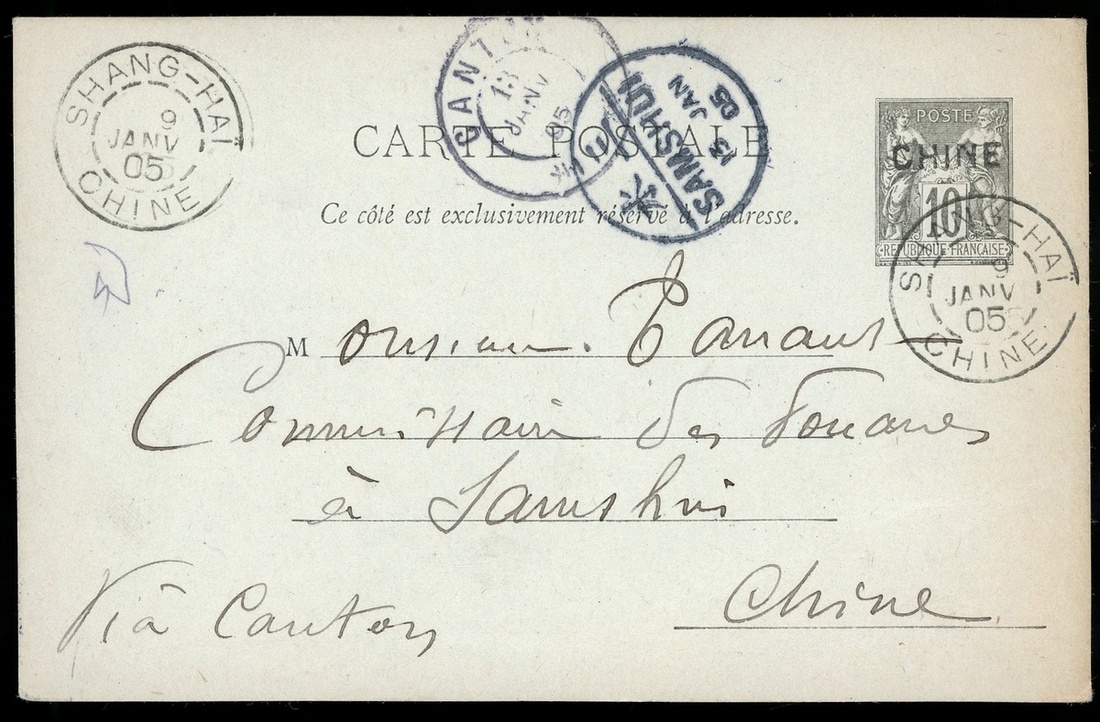 SHANG-HAÏ
9
JANV
05
CHINE
CANTON
13
JANV
05
SAMSHUI
13
JAN
05
POSTE
CHINE
10
REPUBLIQUE FRANÇAISE
SHANG-HAÏ
9
JANV
05
CHINE
CARTE POSTALE
Ce côté est exclusivement réservé à l'adresse.
Monsieur
Commissaire des Douanes
à Samshui
Chine
Via Canton